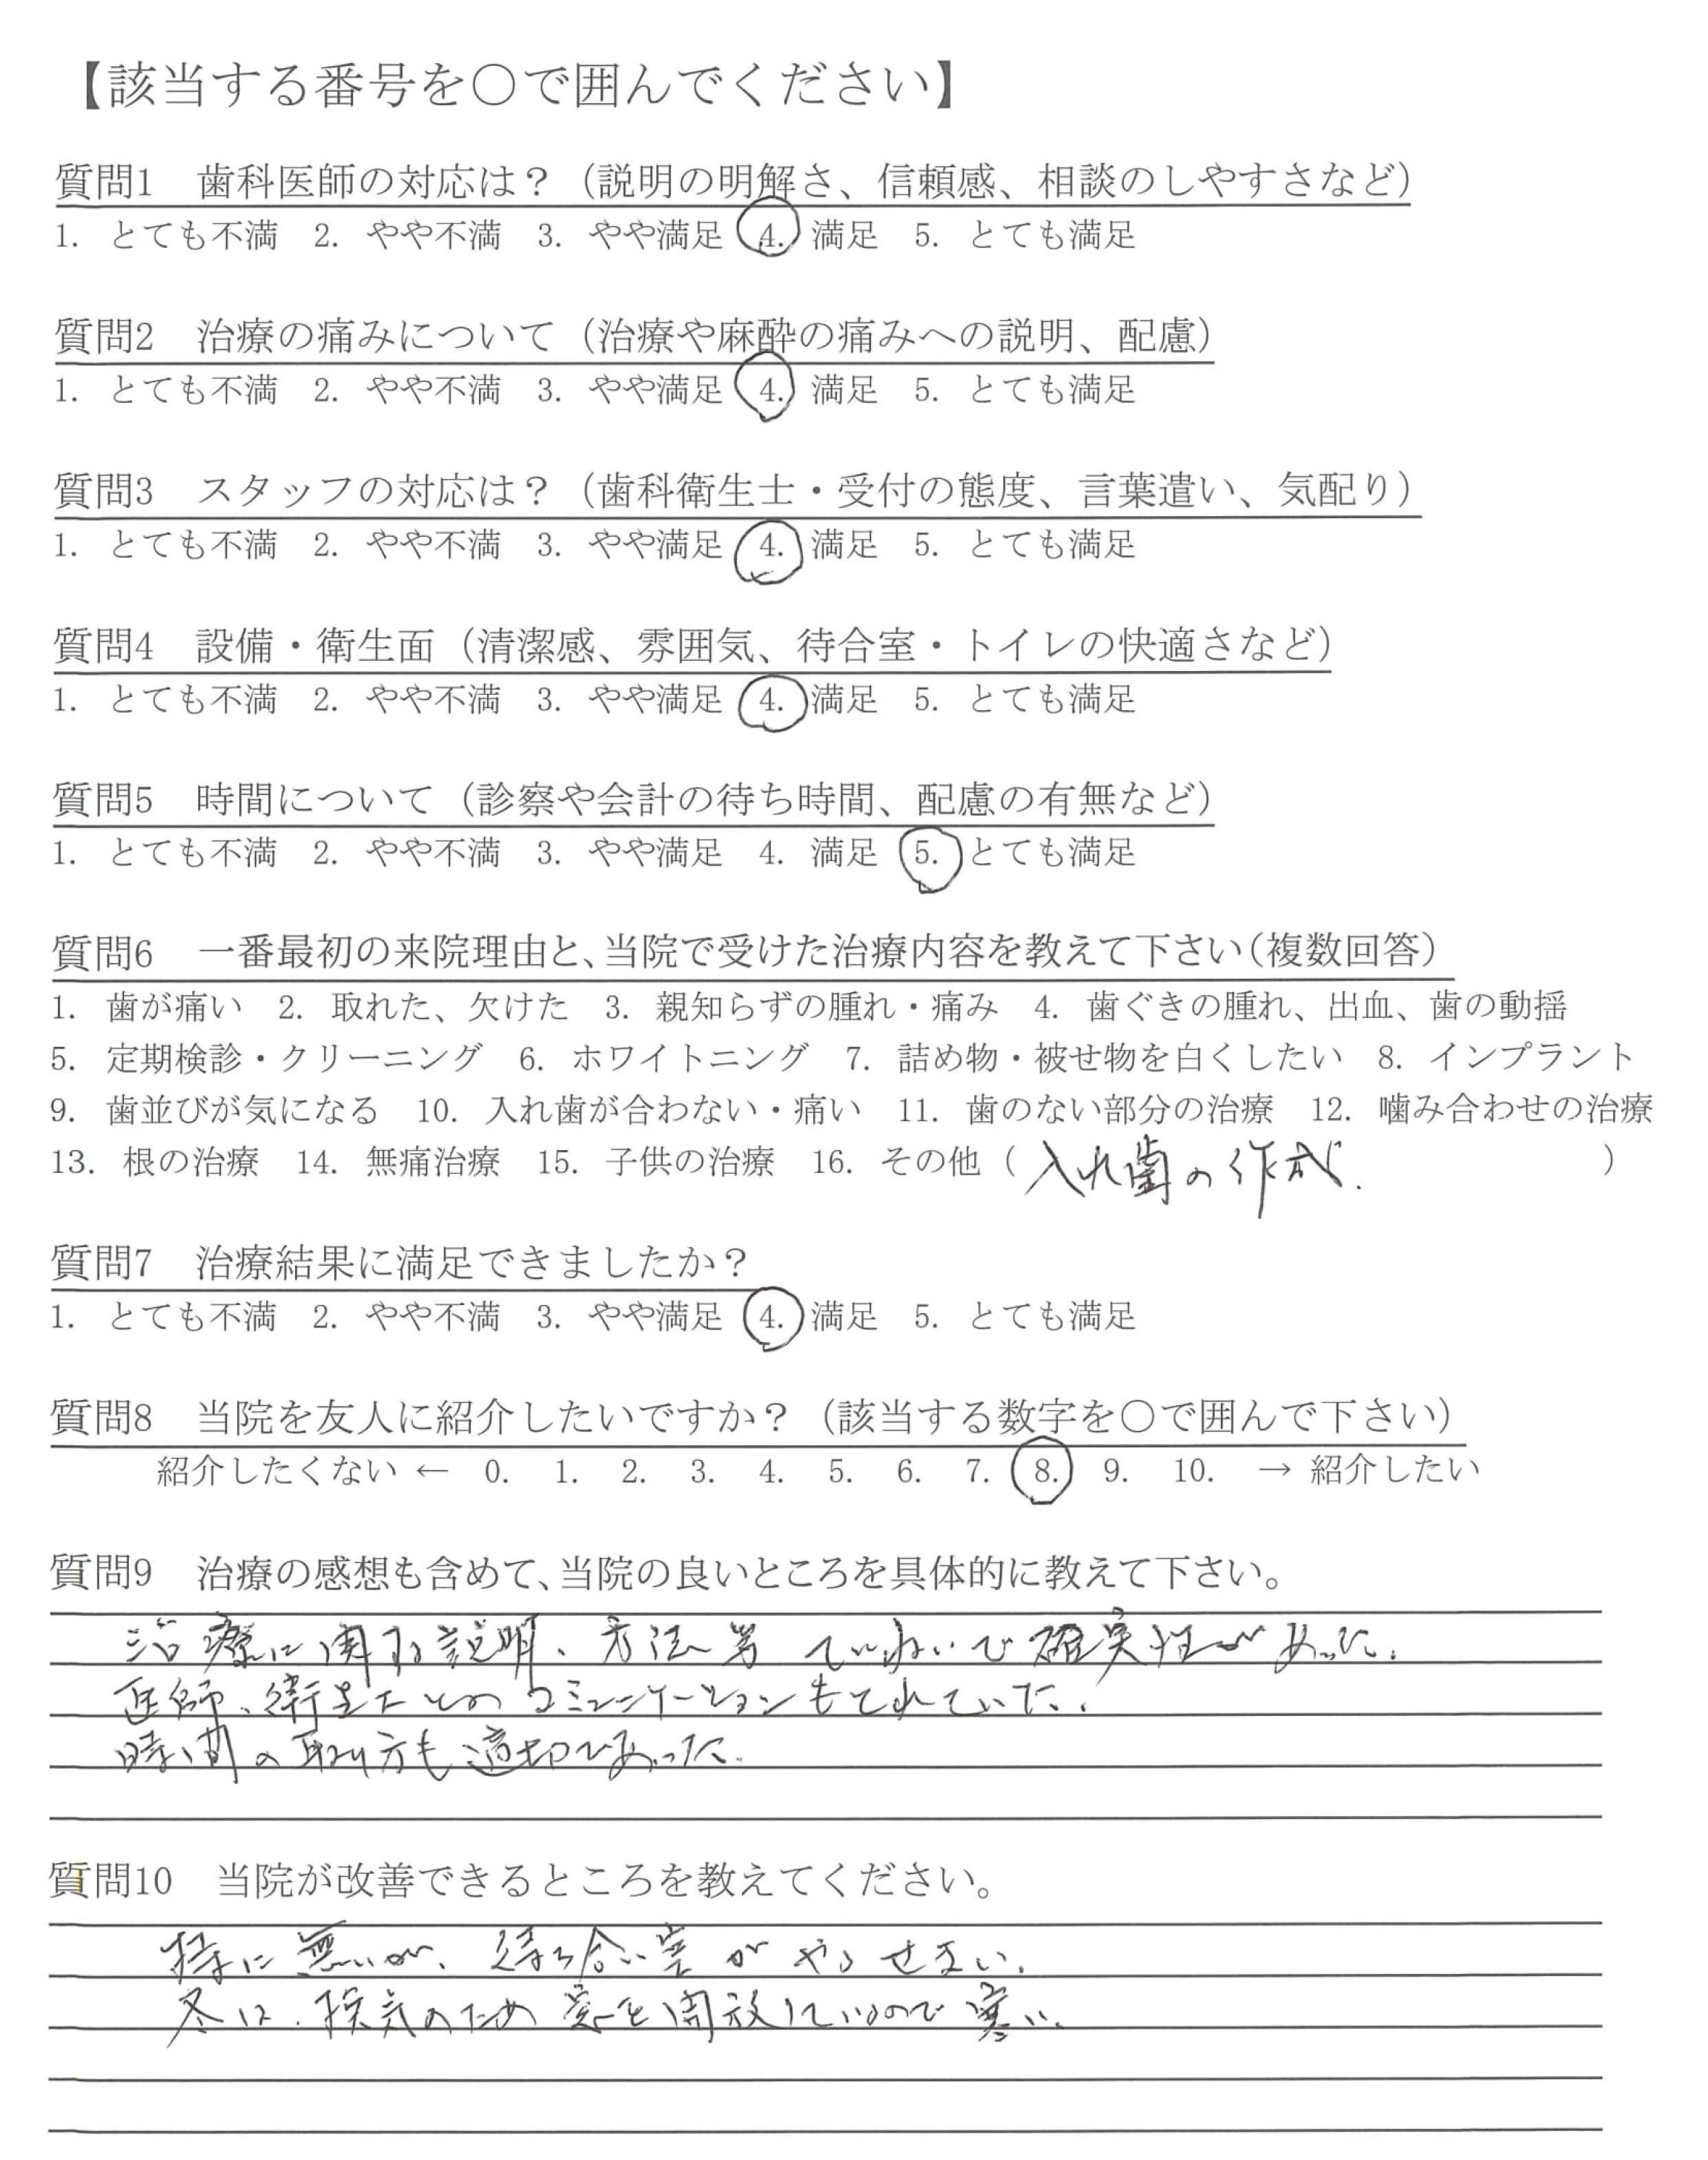 【該当する番号を〇で囲んでください】
質問1　歯科医師の対応は？（説明の明解さ、信頼感、相談のしやすさなど）
1. とても不満　2. やや不満　3. やや満足　4. 満足　5. とても満足
質問2　治療の痛みについて（治療や麻酔の痛みへの説明、配慮）
1. とても不満　2. やや不満　3. やや満足　4. 満足　5. とても満足
質問3　スタッフの対応は？（歯科衛生士・受付の態度、言葉遣い、気配り）
1. とても不満　2. やや不満　3. やや満足　4. 満足　5. とても満足
質問4　設備・衛生面（清潔感、雰囲気、待合室・トイレの快適さなど）
1. とても不満　2. やや不満　3. やや満足　4. 満足　5. とても満足
質問5　時間について（診察や会計の待ち時間、配慮の有無など）
1. とても不満　2. やや不満　3. やや満足　4. 満足　5. とても満足
質問6　一番最初の来院理由と、当院で受けた治療内容を教えて下さい（複数回答）
1. 歯が痛い　2. 取れた、欠けた　3. 親知らずの腫れ・痛み　4. 歯ぐきの腫れ、出血、歯の動揺
5. 定期検診・クリーニング　6. ホワイトニング　7. 詰め物・被せ物を白くしたい　8. インプラント
9. 歯並びが気になる　10. 入れ歯が合わない・痛い　11. 歯のない部分の治療　12. 噛み合わせの治療
13. 根の治療　14. 無痛治療　15. 子供の治療　16. その他（入れ歯の作成.）
質問7　治療結果に満足できましたか？
1. とても不満　2. やや不満　3. やや満足　4. 満足　5. とても満足
質問8　当院を友人に紹介したいですか？（該当する数字を〇で囲んで下さい）
紹介したくない ← 0. 1. 2. 3. 4. 5. 6. 7. 8. 9. 10. → 紹介したい
質問9　治療の感想も含めて、当院の良いところを具体的に教えて下さい。
治療に関する説明、方法等 ていねいで確実性があった.
医師、衛生士とのコミュニケーションもとれていた.
時間の取り方も適切であった.
質問10　当院が改善できるところを教えてください。
特に無いが、待ち合い室が やゝ せまい.
冬は、換気のため窓を開放しているので寒い.